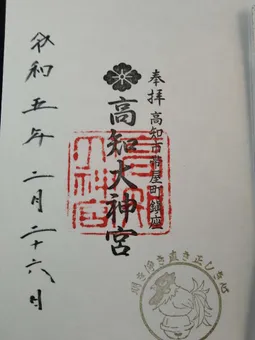 奉拝 高知市帯屋町鎮座
高知大神宮
令和五年二月二十六日